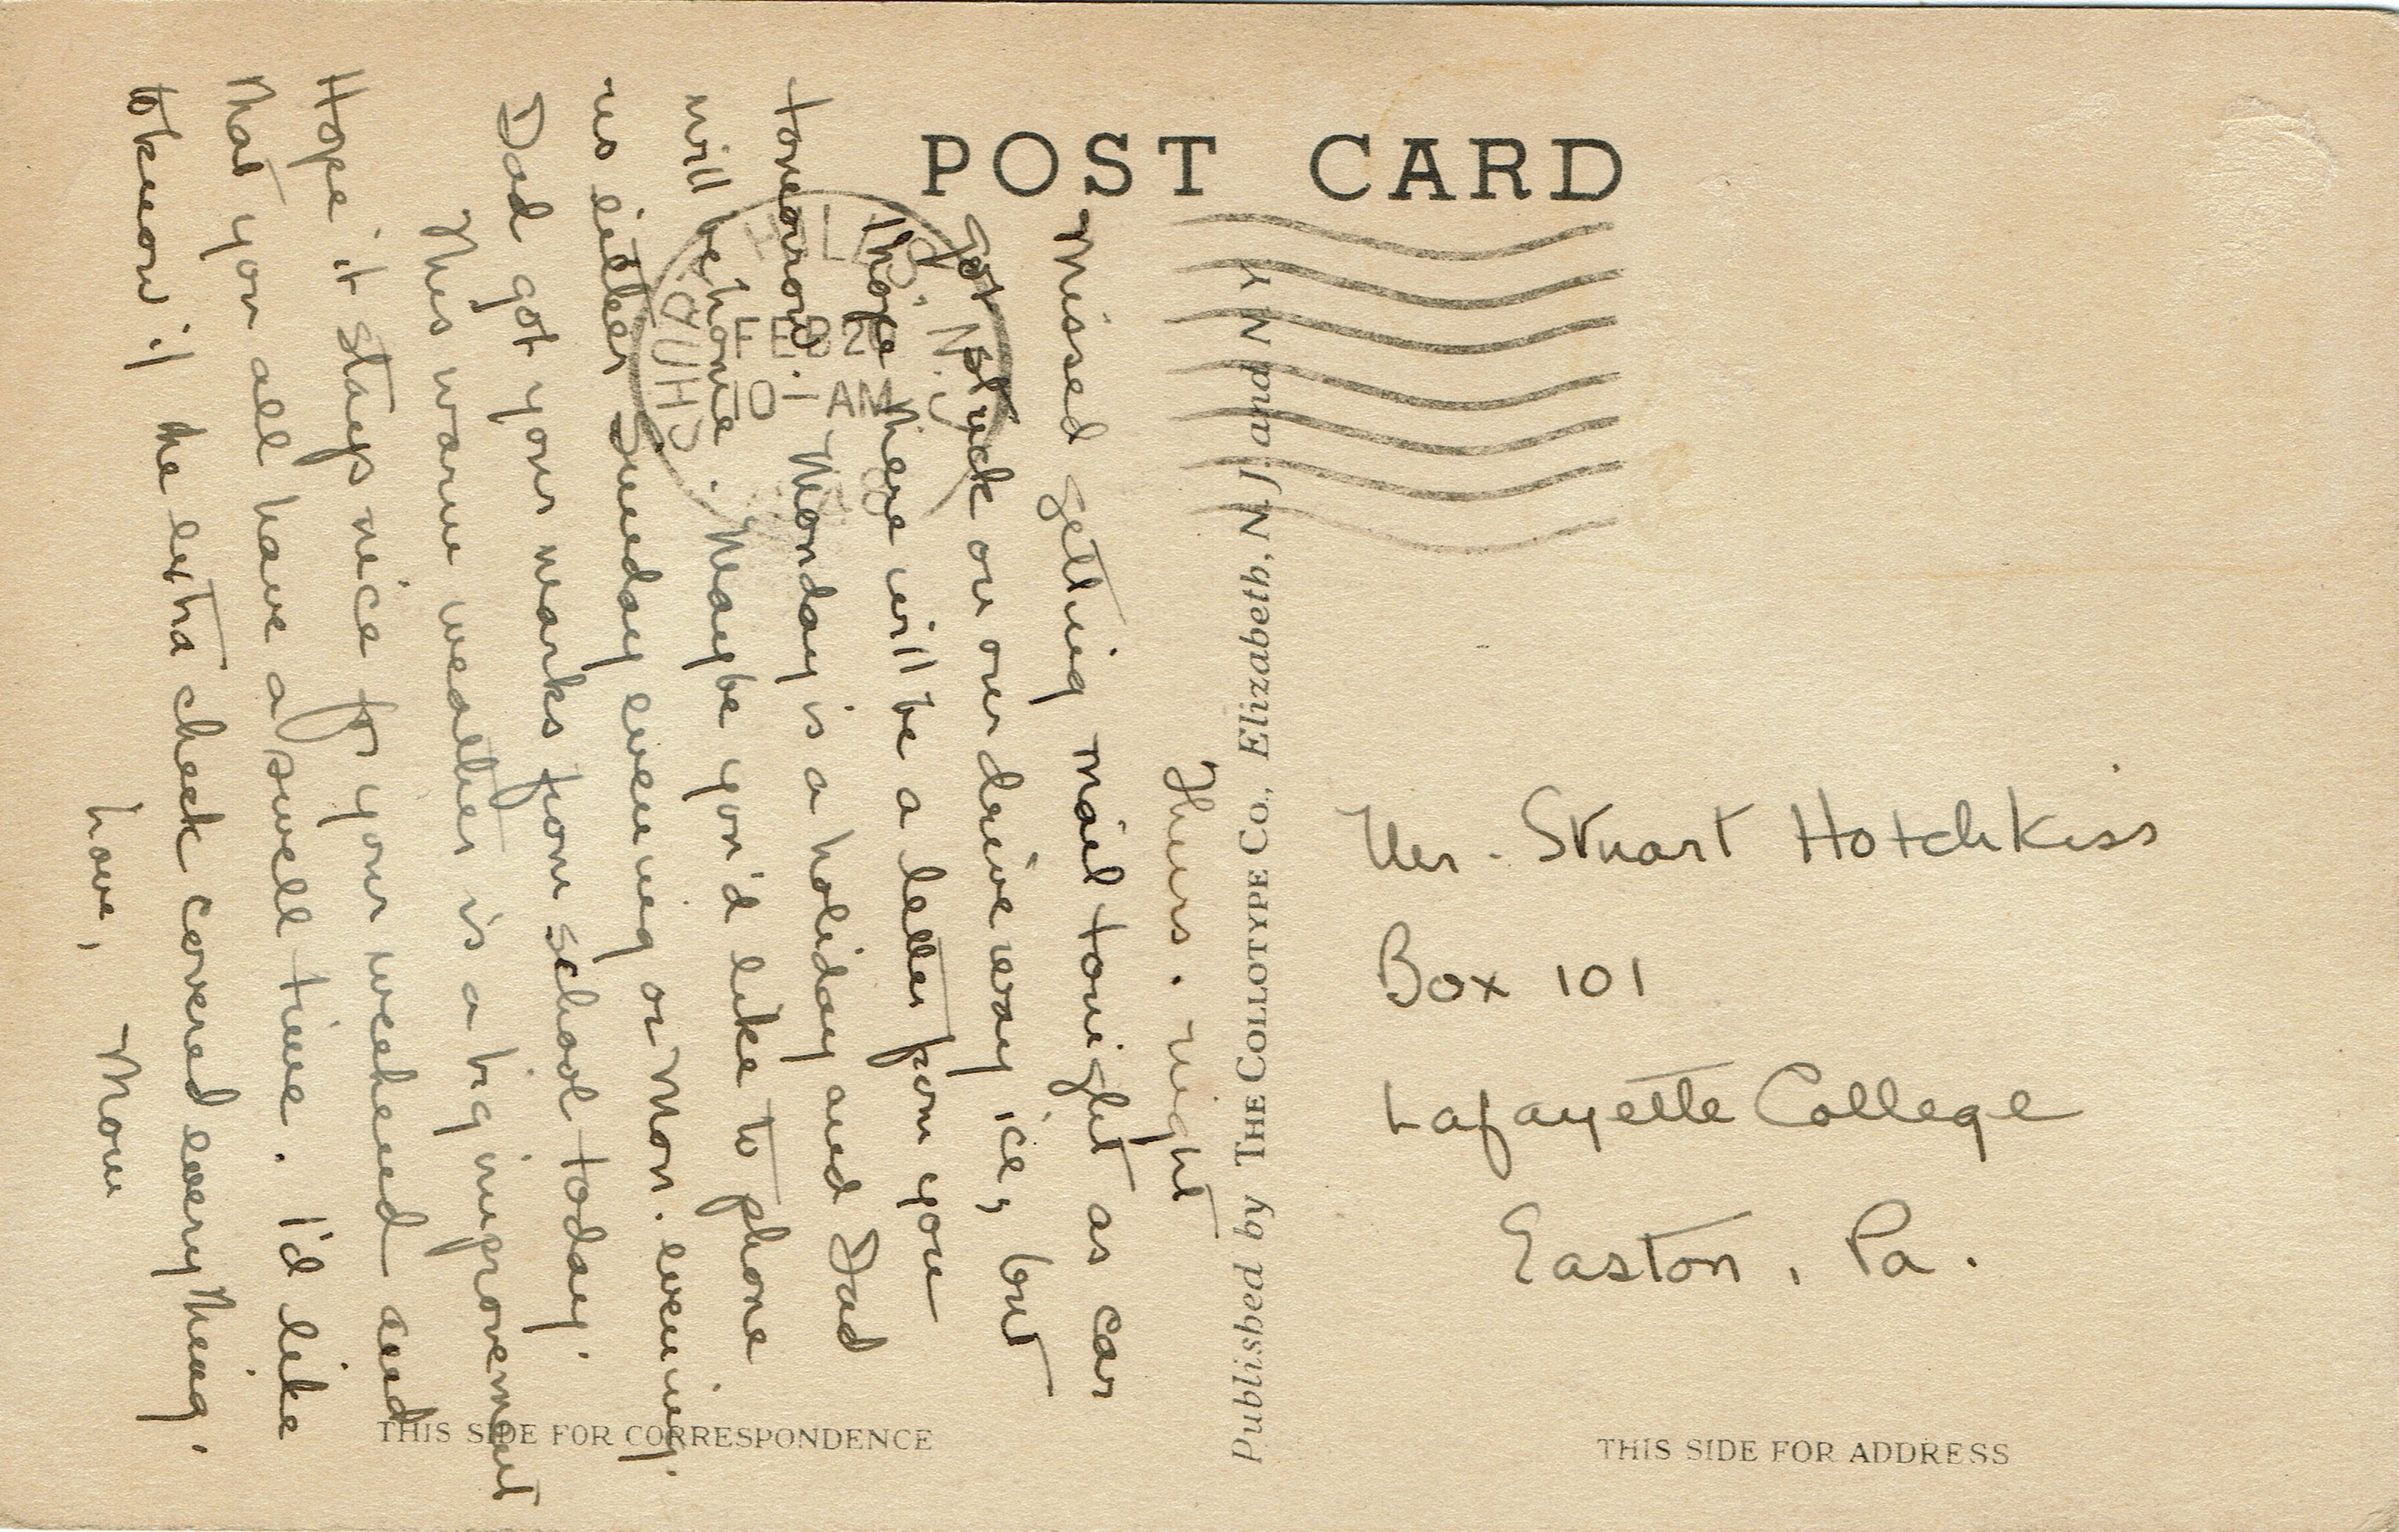 POST CARD
Thurs. night
Missed getting mail tonight as car
got stuck on our driveway ice, but
I hope there will be a letter from you
tomorrow. Monday is a holiday and Dad
will be home. Maybe you'd like to phone
us either Sunday evening or Mon. evening.
Dad got your marks from school today.
This warm weather is a big improvement
Hope it stays nice for your weekend and
that you all have a swell time. I'd like
to know if the extra check covered everything.
Love, Mom
FEB 20
10-AM
N.J.
Published by THE COLLOTYPE CO., Elizabeth, N J and N Y
Mr. Stuart Hotchkiss
Box 101
Lafayette College
Easton, Pa.
THIS SIDE FOR CORRESPONDENCE
THIS SIDE FOR ADDRESS